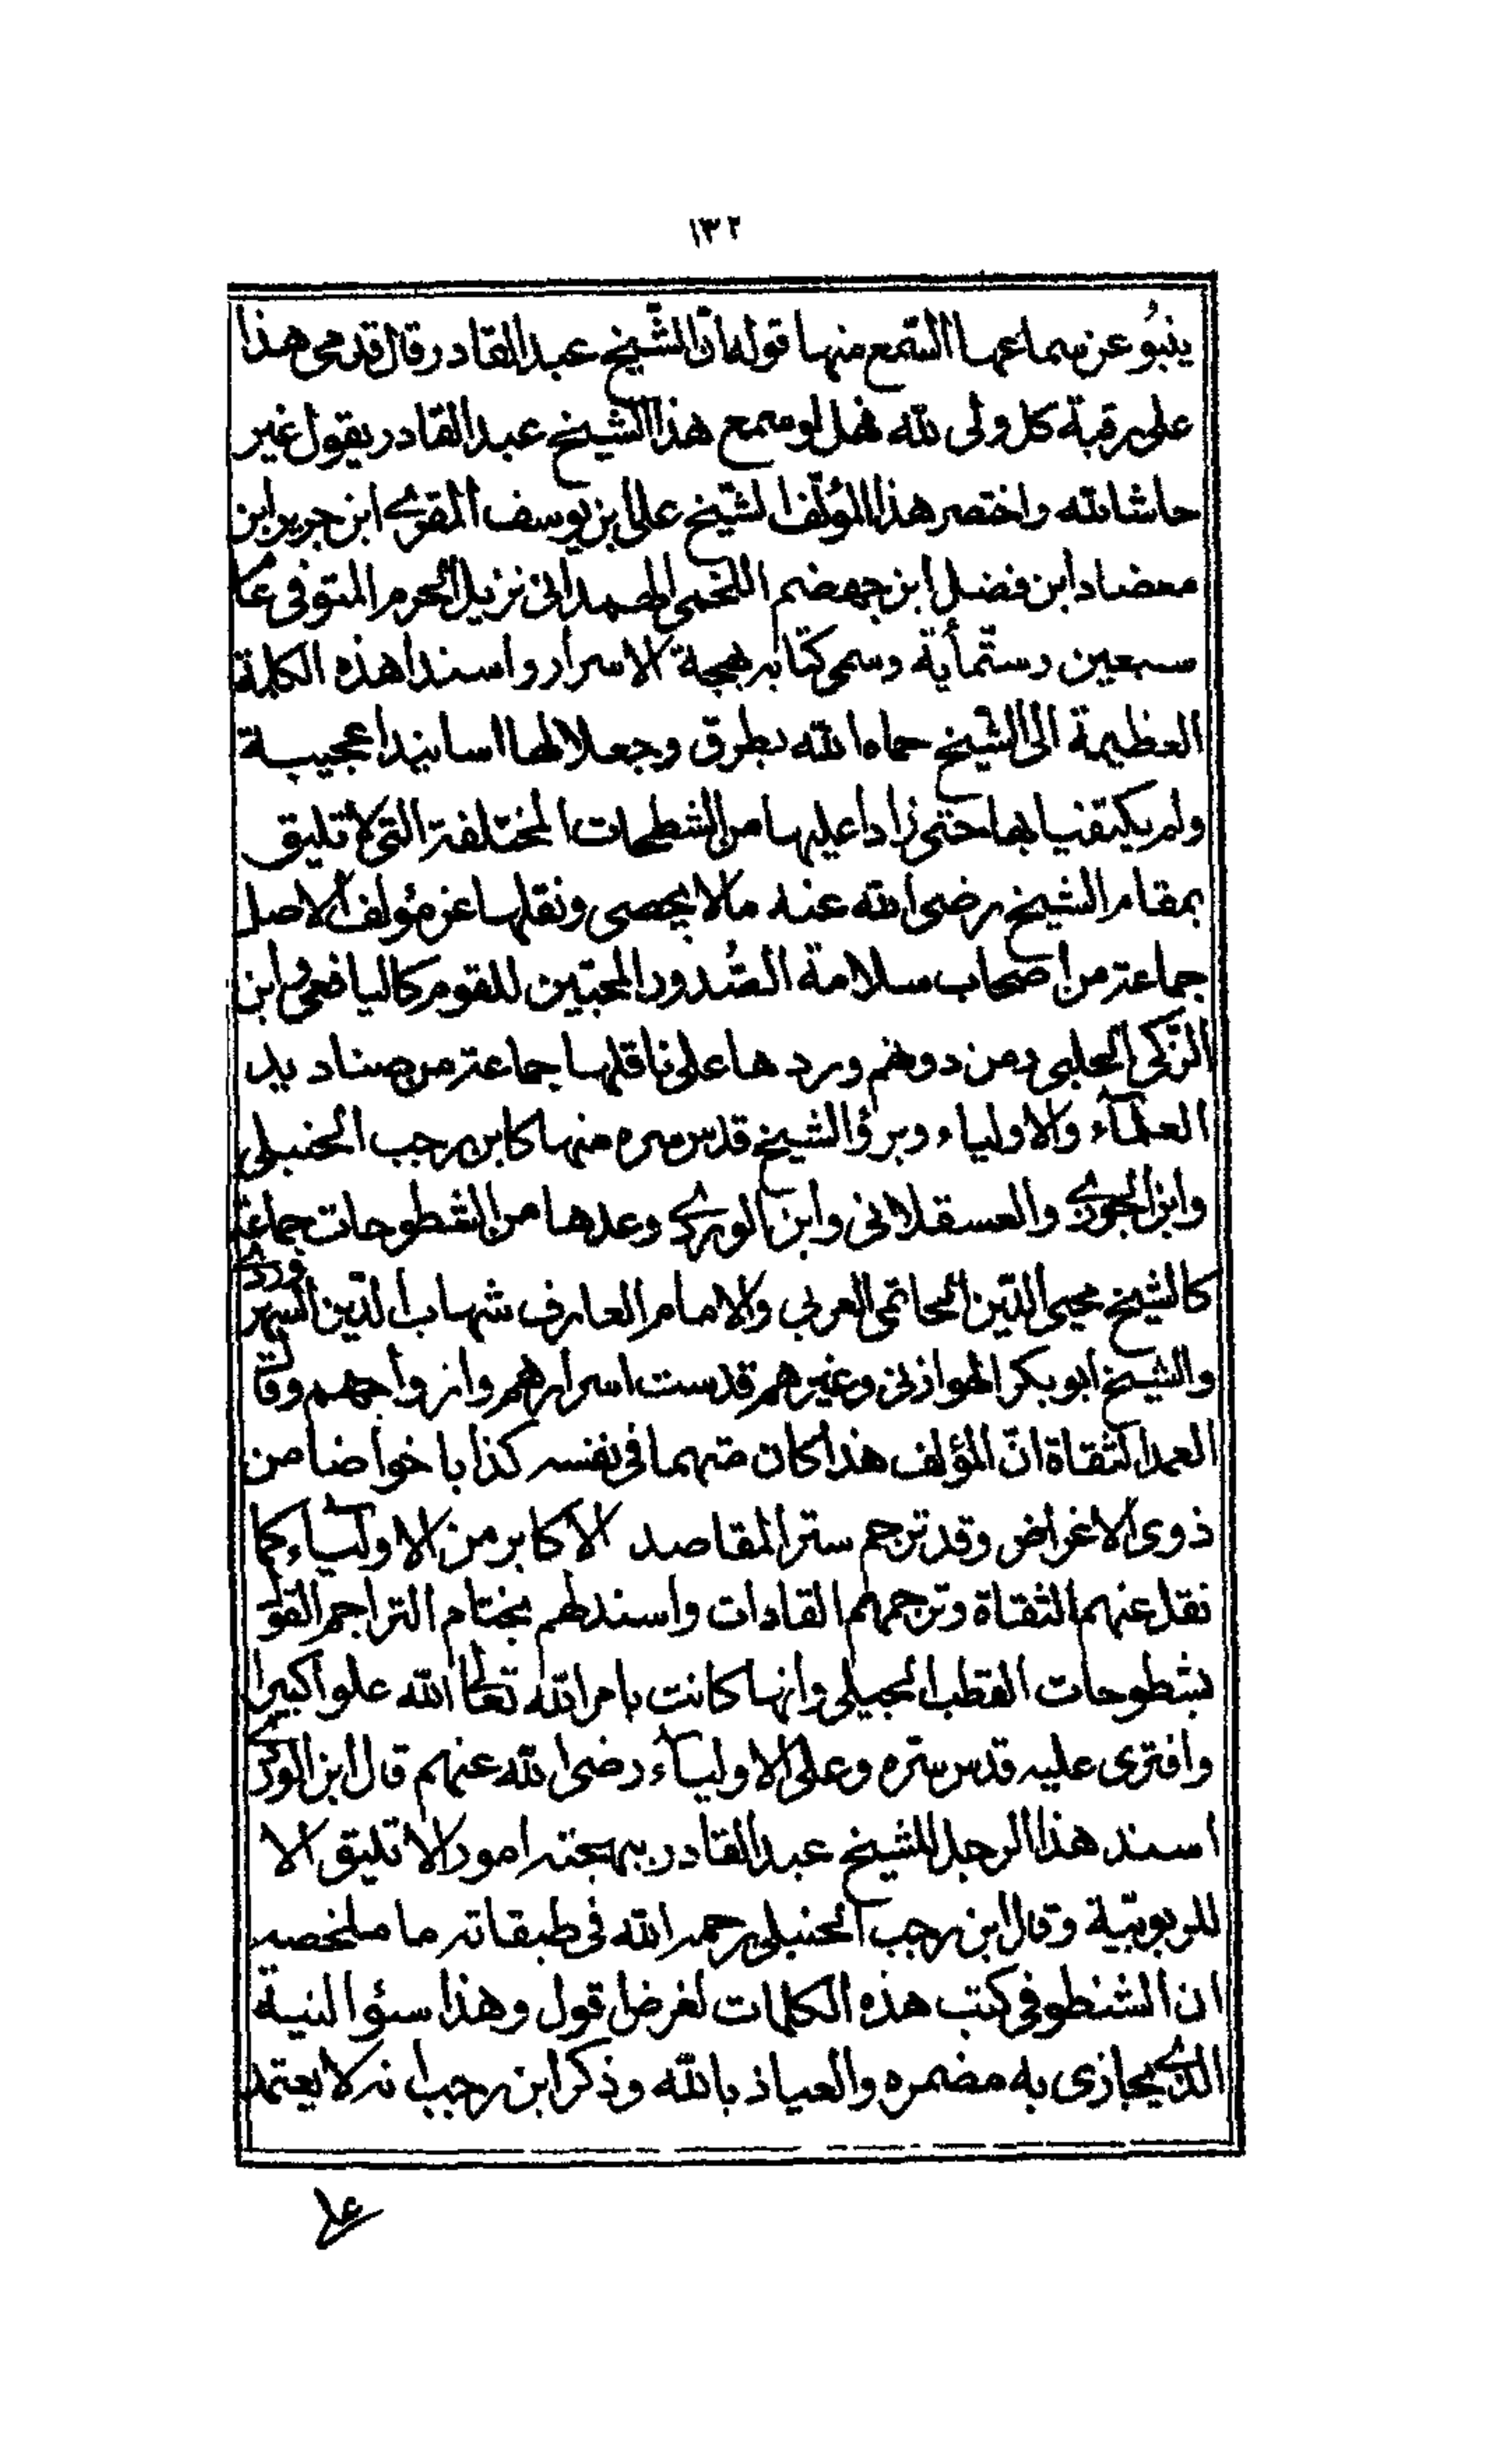 ١٣٢
ينبُو عن سماعها السّمع منها قوله انّ الشّيخ عبد القادر قال قدمى هذا
على رقبة كل ولى لله فهل لو سمع هذا الشيخ عبد القادر يقول غير
حاشا لله واختصر هذا المؤلّف الشّيخ على ابن يوسف المقرى ابن جرير ابن
معضاد ابن فضل ابن جهضم اللخمى الهمدانى نزيل الحرم المتوفى عام
سبعين وستّمأية وسمى كتابه بهجة الاسرار واسندا هذه الكلمة
العظيمة الى الشيخ حماه الله بطرق وجعلا لها اسانيدا عجيبة
ولم يكتفيا بها حتى زادا عليها من الشطحات المختلفة التى لا تليق
بمقام الشيخ رضى الله عنه مالا يحصى ونقلها عن مؤلف الاصل
جماعة من اصحاب سلامة الصُّدور المحبّين للقوم كاليافعى وابن
الزّكى الحلبى ومن دونهم وردها على ناقلها جماعة من صناديد
العلمآء والاولياء وبرؤا الشيخ قدس سره منها كابن رجب الحنبلى
وابن الجوزى والعسقلانى وابن الوردى وعدها من الشطوحات جماعة
كالشيخ محيى الدّين الحاتمى العربى والامام العارف شهاب الدّين السهروردى
والشيخ ابو بكر الهوازنى وغيرهم قدست اسرارهم وازواجهم وقال
العمد الثقاة انّ المؤلف هذا كان متهما فى نفسه كذابا خواضا من
ذوى الاغراض وقد ترجم سترا لمقاصد الاكابر من الاوليآء كما
نقل عنهم الثقاة وترجمهم القادات واسند لهم بختام التراجم القول
بشطوحات القطب الجيلى وانها كانت بامر الله تعالى الله علوا كبيرا
وافترى عليه قدس سّره وعلى الاوليآء رضى الله عنهم قال ابن الوردى
اسند هذا الرجل للشيخ عبد القادر ببهجته امور لا تليق الا
للربوبيّة وقال ابن رجب الحنبلى رحمه الله فى طبقاته ما ملخصه
ان الشنطوفى كتب هذه الكلمات لغرض قول وهذا سئو النية
الذى يجازى به مضمره والعياذ بالله وذكر ابن رجب انه لا يعتمد
على